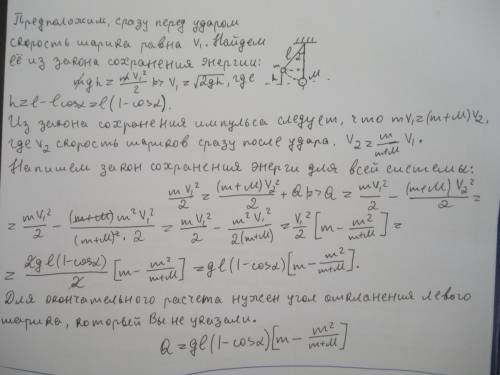 Предположим, сразу перед ударом
скорость шарика равна V₁. Найдем
её из закона сохранения энергии:
mgh = mV₁²/2 => V₁ = √2gh, где
h = l - l cosα = l(1-cosα).
l α m h M
Из закона сохранения импульса следует, что mV₁=(m+M)V₂,
где V₂ скорость шариков сразу после удара. V₂ = m/(m+M) V₁.
Напишем закон сохранения энерги для всей системы:
mV₁²/2 = (m+M)V₂²/2 + Q => Q = mV₁²/2 - (m+M)V₂²/2 =
= mV₁²/2 - (m+M)m²V₁²/((m+M)²·2) = mV₁²/2 - m²V₁²/(2(m+M)) = V₁²/2 [m - m²/(m+M)] =
= 2gl(1-cosα)/2 [m - m²/(m+M)] = gl(1-cosα)[m - m²/(m+M)].
Для окончательного расчета нужен угол отклонения левого
шарика, который Вы не указали.
Q = gl(1-cosα)[m - m²/(m+M)]